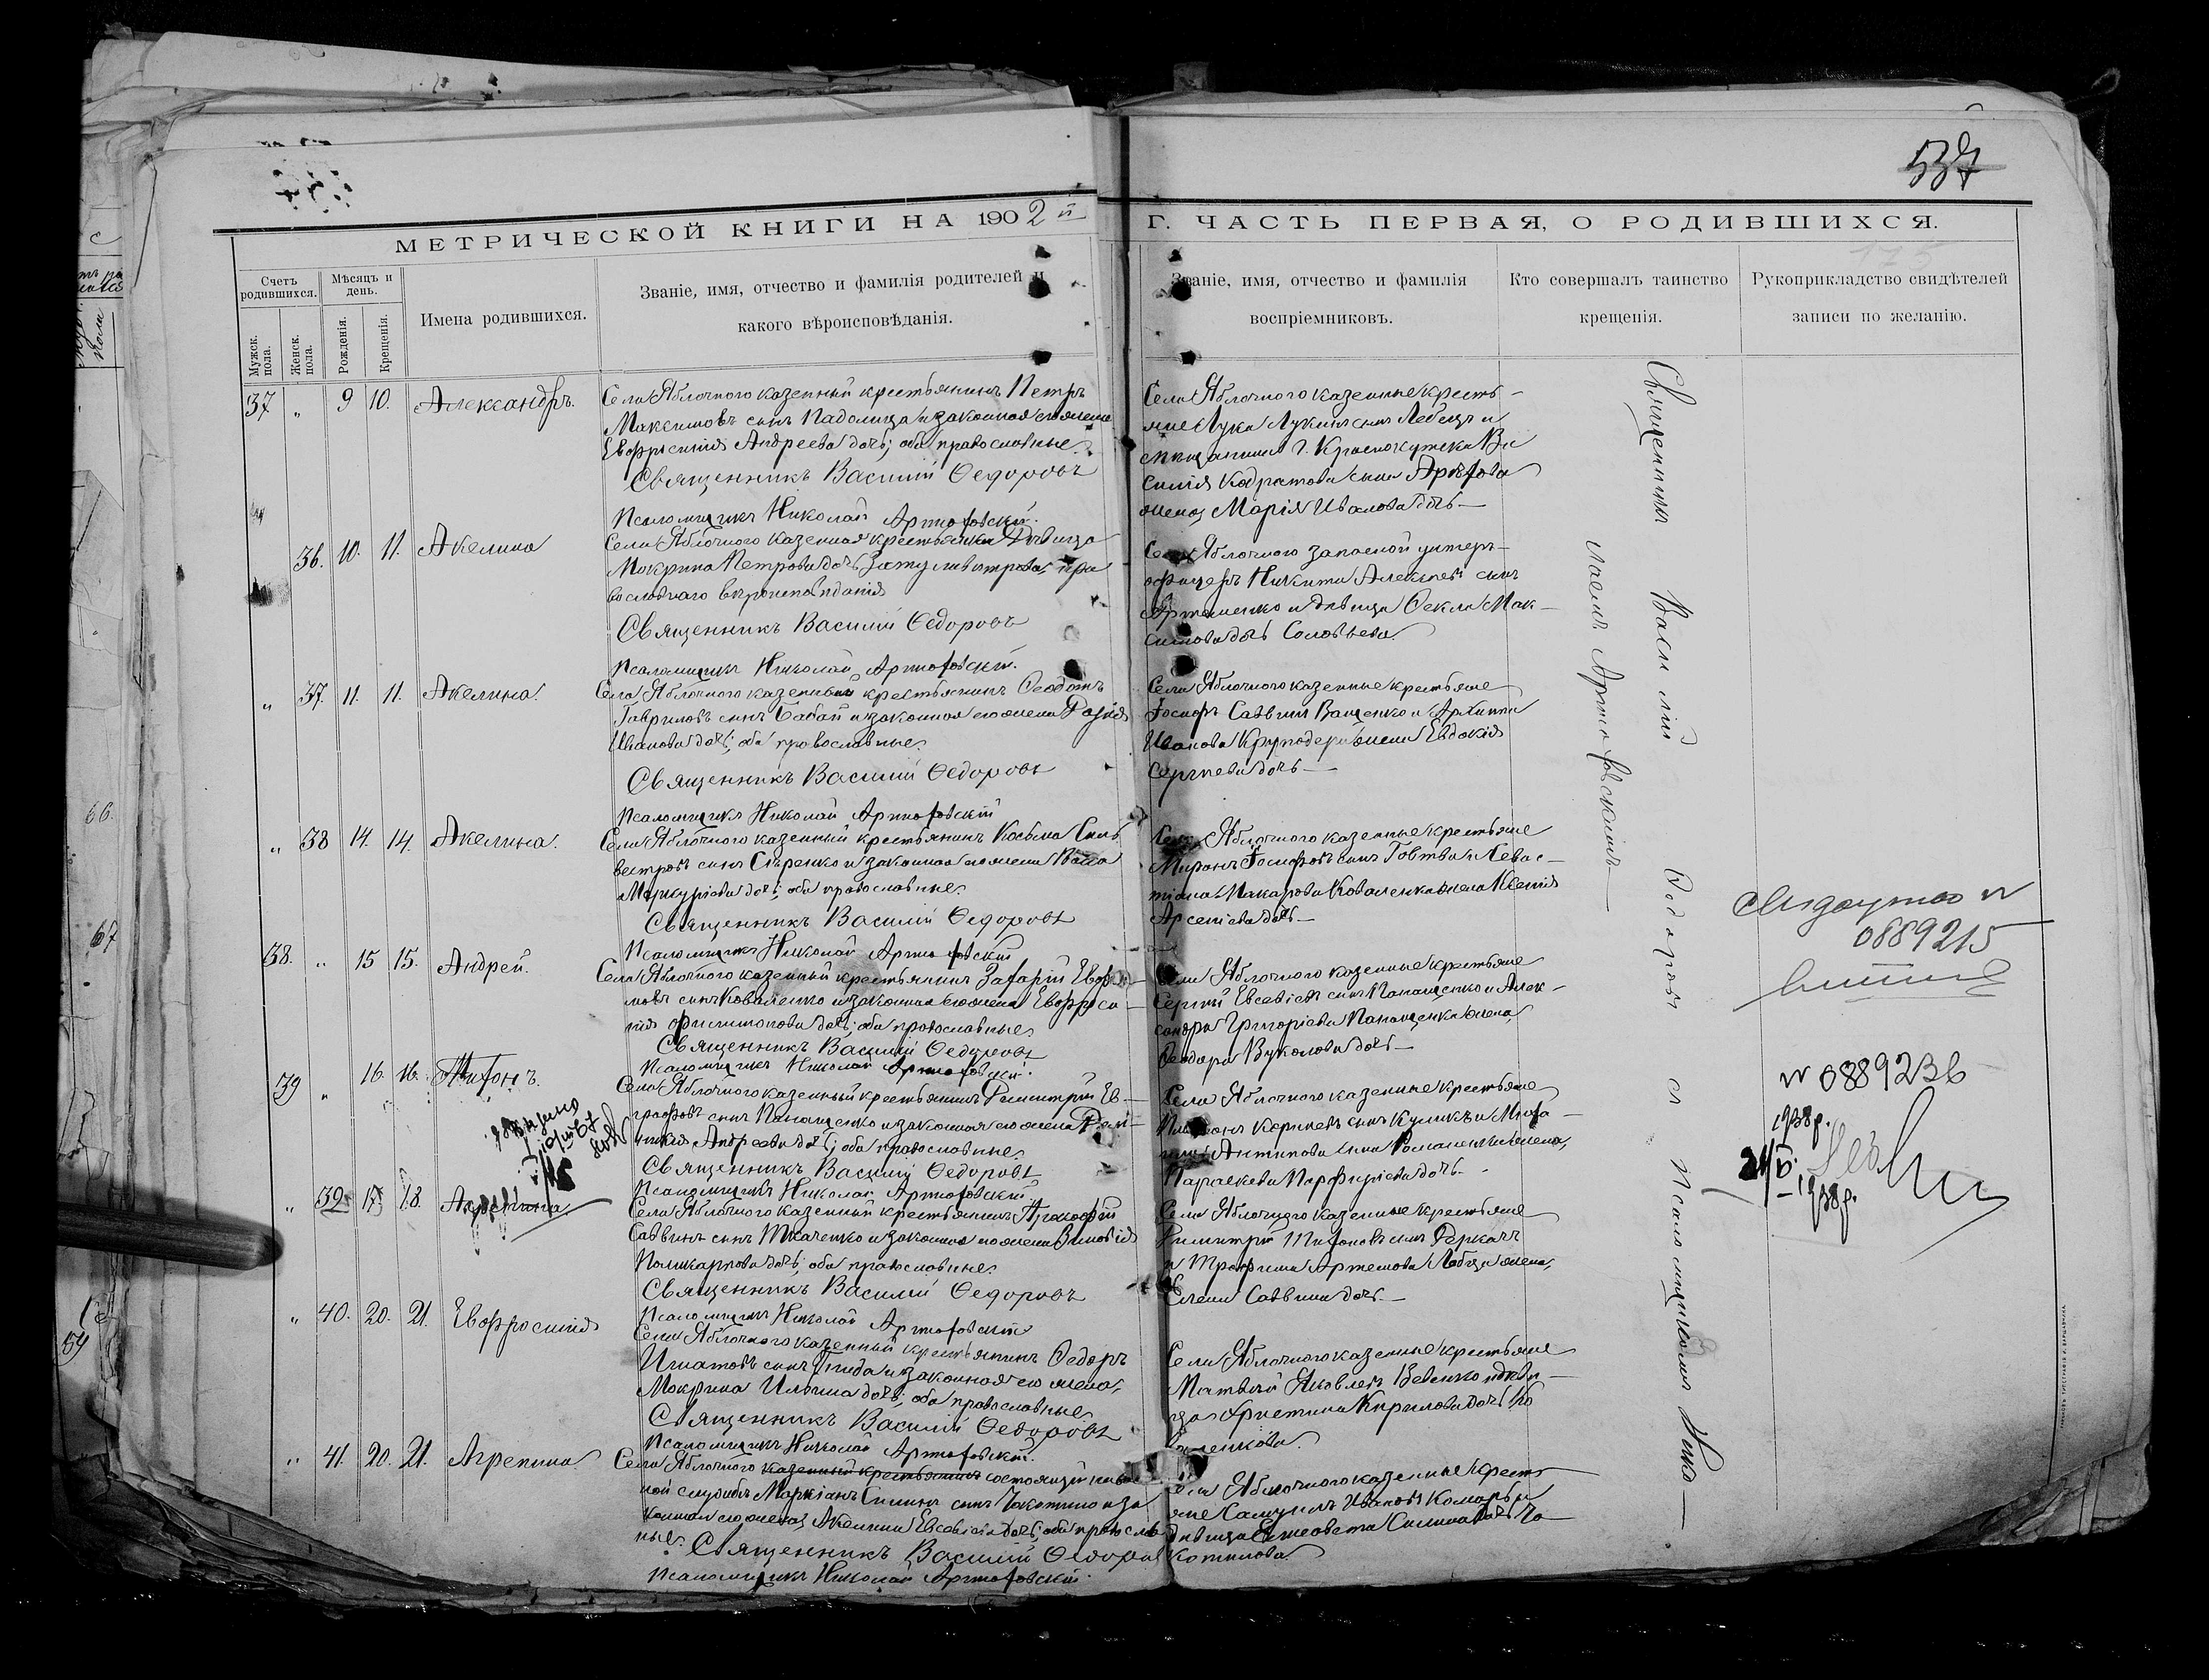 537
МЕТРИЧЕСКОЙ КНИГИ НА 1902й Г. ЧАСТЬ ПЕРВАЯ, О РОДИВШИХСЯ.
Счетъ родившихся.
Мужск. пола.
Женск. пола.
Мѣсяцъ и день.
Рожденія.
Крещенія.
Имена родившихся.
Званіе, имя, отчество и фамилія родителей и
какого вѣроисповѣданія.
Званіе, имя, отчество и фамилія
воспріемниковъ.
Кто совершалъ таинство
крещенія.
Рукоприкладство свидѣтелей
записи по желанію.
37 " 9 10. Александръ.
Села Яблочного казенный крестьянинъ Петръ
Максимовъ сынъ и законная его жена
Евфросинія Андреева дочь; оба православные.
Священникъ Василій Ѳедоровъ
Псаломщикъ Николай Артюховскій.
Села Яблочного казенные кресть-
яне Лука Лукинъ сынъ и
г. Краснокутска Ва
силія сына Арефова
жена Марія Иванова дочь—
36. 10. 11. Акелина
Села Яблочного казенная крестьянка дѣвица
Мокрина Петрова дочь пра
вославнаго вѣроисповѣданія
Священникъ Василій Ѳедоровъ
Псаломщикъ Николай Артюховскій.
Села Яблочного запасной унтеръ-
офицеръ Никита Алексѣевъ сынъ
Артеменко и дѣвица Ѳекла Мак-
симова дочь Соловьева
" 37. 11. 11. Акелина.
Села Яблочного казенный крестьянинъ Ѳеодотъ
Гавриловъ сынъ Бабай и законная его жена
Иванова дочь; оба православные.
Священникъ Василій Ѳедоровъ
Псаломщикъ Николай Артюховскій
Села Яблочного казенные крестьяне
Іосифъ Саввинъ Ващенко и Архиппа
Иванова жена Евдокія
Сергѣева дочь—
" 38 14. 14. Акелина.
Села Яблочного казенный крестьянинъ Косьма Силь
вестровъ сынъ Сѣренко и законная его жена Васса
Меркуріева дочь; оба православные.
Священникъ Василій Ѳедоровъ
Псаломщикъ Николай Артюховскій
Села Яблочного казенные крестьяне
Миронъ Іосифовъ сынъ Говтва и Севас-
тіана Макарова Коваленка жена Ксенія
Арсеніева дочь—
38. " 15 15. Андрей.
Села Яблочного казенный крестьянинъ Захарій
сынъ Коваленко и законная его жена Евфроси-
нія Филимонова дочь; оба православные.
Священникъ Василій Ѳедоровъ
Псаломщикъ Николай Артюховскій.
Села Яблочного казенные крестьяне
Сергѣй Евсевіевъ сынъ Панащенко и Алек-
сандра Григоріева Панащенка жена,
Ѳеодора Вуколова дочь—
39 " 16. 16. Тихонъ.
Села Яблочного казенный крестьянинъ Димитрій Ев-
графовъ сынъ Панащенко и законная его жена
Андреева дочь; оба православные.
Священникъ Василій Ѳедоровъ
Псаломщикъ Николай Артюховскій.
Села Яблочного казенные крестьяне
Корнеевъ сынъ Куликъ и Миха-
ила Антипова сына Романенка жена,
Параскева Порфиріева дочь.
" 39 17 18.
Села Яблочного казенный крестьянинъ Прокофій
Саввинъ сынъ Ткаченко и законная его жена Зиновія
Поликарпова дочь; оба православные.
Священникъ Василій Ѳедоровъ
Псаломщикъ Николай Артюховскій
Села Яблочного казенные крестьяне
Димитрій Тихоновъ сынъ Деркачъ
и Трофима Артемова жена,
Елена Саввина дочь.—
" 40. 20. 21. Евфросинія
Села Яблочного казенный крестьянинъ Ѳедоръ
Игнатовъ сынъ и законная его жена,
Мокрина Ильина дочь; оба православные.
Священникъ Василій Ѳедоровъ
Псаломщикъ Николай Артюховскій.
Села Яблочного казенные крестьяне
Матвѣй Яковлевъ и дѣви-
ца Христина Кирилова дочь Ко
валенкова.
" 41. 20. 21. Агрепина.
Села Яблочного казенный крестьянинъ состоящій
ной службѣ Маркіанъ Силинъ сынъ и за
конная его жена, Акелина Евсевіева дочь; оба православ
ные. Священникъ Василій Ѳедоровъ
Псаломщикъ Николай Артюховскій.
Села Яблочного казенные кресть
яне Самуилъ Ивановъ и
дѣвица Елисавета Силина дочь
Священникъ Василій Ѳедоровъ съ Псаломщикомъ Нико-
лаемъ Артюховскимъ—
0889215
№ 0889236
1938р.
1938р.